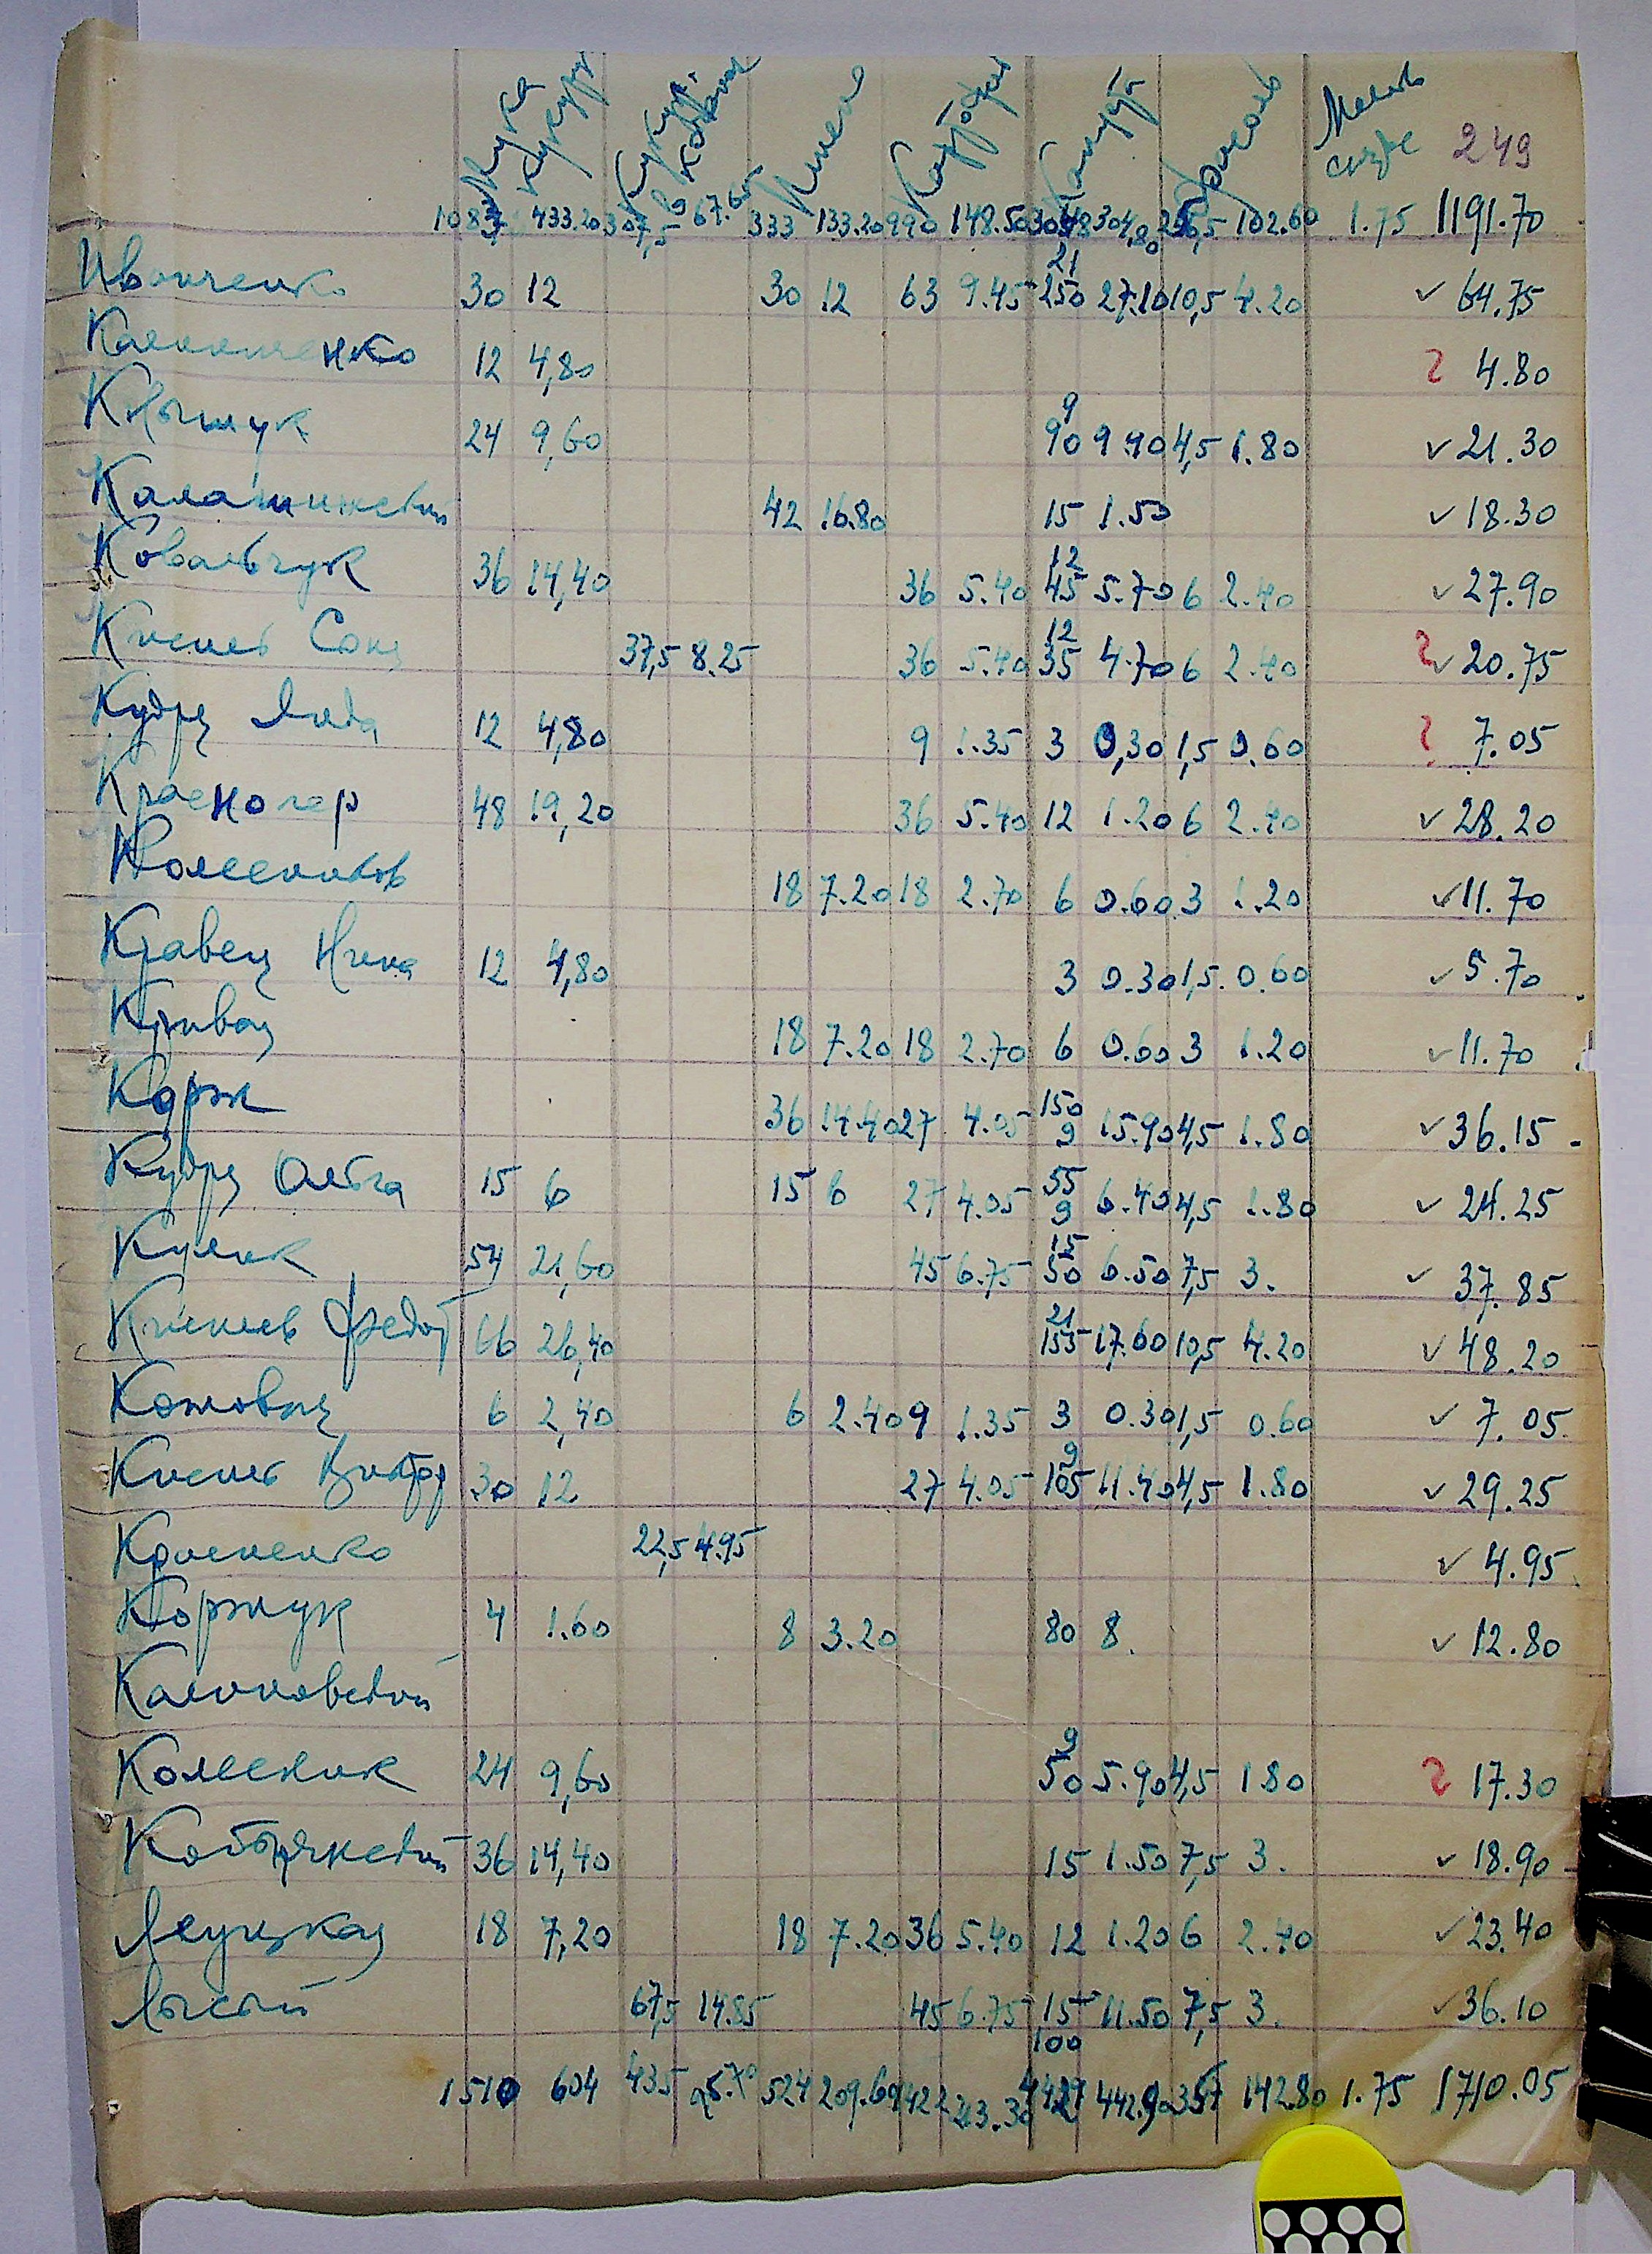 Мука кукурузн Кукуруз в кочанах Пшено Картофель Капуста Фасоль Масло сливе 249
1083 433.20 307,5 67.65 333 133.20 990 148.50 3048 304,80 256,5 102.60 1.75 1191.70
Иванченко 30 12 30 12 63 9.45 21 250 27.10 10,5 4.20 ✓ 64.75
Калиниченко 12 4,80 ? 4.80
Клымчук 24 9,60 9 90 9.90 4,5 1.80 ✓ 21.30
Калашинский 42 16.80 15 1.50 ✓ 18.30
Ковальчук 36 14,40 36 5.40 12 45 5.70 6 2.40 ✓ 27.90
Кисиль Соня 37,5 8.25 36 5.40 12 35 4.70 6 2.40 ? ✓ 20.75
Кудря Лида 12 4,80 9 1.35 3 0,30 1,5 0.60 ? 7.05
Красногор 48 19,20 36 5.40 12 1.20 6 2.40 ✓ 28.20
Колесников 18 7.20 18 2.70 6 0.60 3 1.20 ✓ 11.70
Кравец Нина 12 4,80 3 0.30 1,5 0.60 ✓ 5.70
Кривая 18 7.20 18 2.70 6 0.60 3 1.20 ✓ 11.70
Корж 36 14.40 27 4.05 150 9 15.90 4,5 1.80 ✓ 36.15
Кудря Ольга 15 6 15 6 27 4.05 55 9 6.40 4,5 1.80 ✓ 24.25
Кулик 54 21,60 45 6.75 15 50 6.50 7,5 3. ✓ 37.85
Киселев Федот 66 26,40 21 155 17.60 10,5 4.20 ✓ 48.20
6 2,40 6 2.40 9 1.35 3 0.30 1,5 0.60 ✓ 7.05
Кисиль Виктор 30 12 27 4.05 9 105 11.40 4,5 1.80 ✓ 29.25
22,5 4.95 ✓ 4.95
Коржук 4 1.60 8 3.20 80 8. ✓ 12.80
Калиновский
Колесник 24 9,60 9 50 5.90 4,5 1.80 ? 17.30
36 14,40 15 1.50 7,5 3. ✓ 18.90
18 7,20 18 7.20 36 5.40 12 1.20 6 2.40 ✓ 23.40
Лысый 67,5 14.85 45 6.75 15 100 11.50 7,5 3. ✓ 36.10
1510 604 435 95.70 524 209.60 1422 213.30 442.90 357 142.80 1.75 1710.05